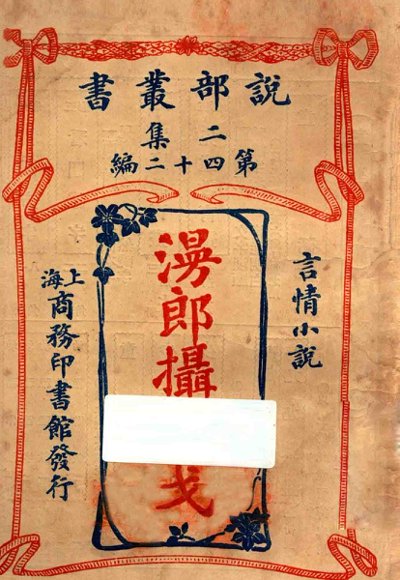 說部叢書
二集
第四十二編
言情小說
漫郎攝戈
上海
商務印書館發行